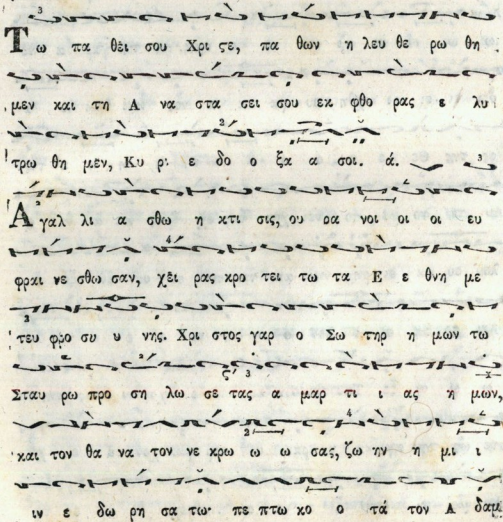 Τω πα θει σου Χρι ϛε, πα θων η λευ θε ρω θη
μεν και τη Α να στα σει σου εκ φθο ρας ε λυ
τρω θη μεν, Κυ ρι ε δο ο ξα α σοι. ά.
Α γαλ λι α σθω η κτι σις, ου ρα νοι οι οι ευ
φραι νε σθω σαν, χει ρας κρο τει τω τα Ε ε θνη με
τευ φρο συ υ νης. Χρι στος γαρ ο Σω τηρ η μων τω
Σταυ ρω προ ση λω σε τας α μαρ τι ι ας η μων,
και τον θα να τον νε κρω ω ω σας, ζω ην η μι
ιν ε δω ρη σα το· πε πτω κο ο τά τον Α δαμ